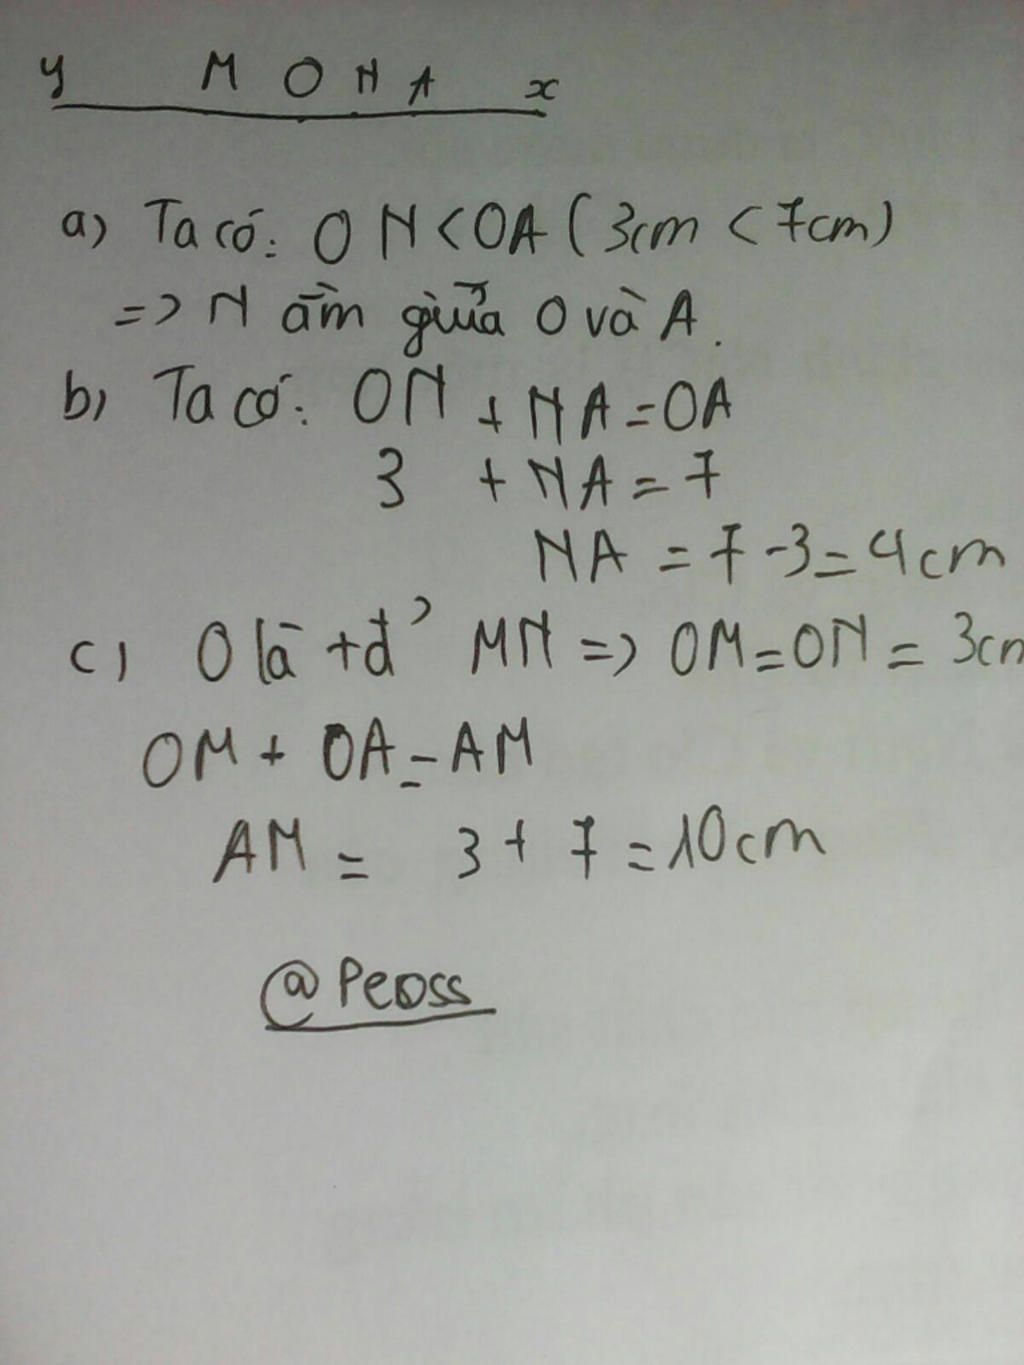 y M O N A x
a) Ta có: ON < OA (3cm < 7cm)
=> N ằm giữa O và A.
b) Ta có: ON + NA = OA
3 + NA = 7
NA = 7 - 3 = 4cm
c) O là +đ' MN => OM = ON = 3cm
OM + OA = AM
AM = 3 + 7 = 10cm
@Peoss